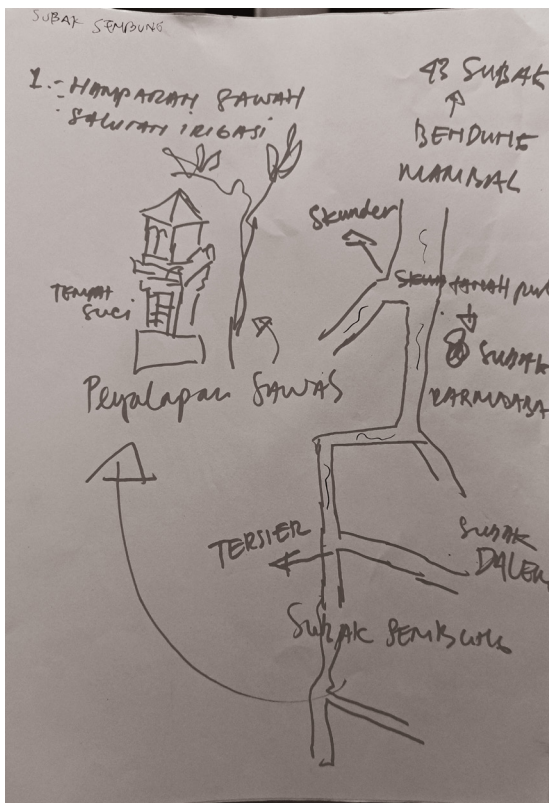 SUBAK SEMBUNG
1.- HAMPARAN SAWAH
SALURAN IRIGASI
43 SUBAK
BENDUNG
MAMBAL
Skunder
TEMPAT
Suci
SUBAK
Peyalapan SAWAS
TERSIER
SUBAK
DALEM
SUBAK SEMBUNG